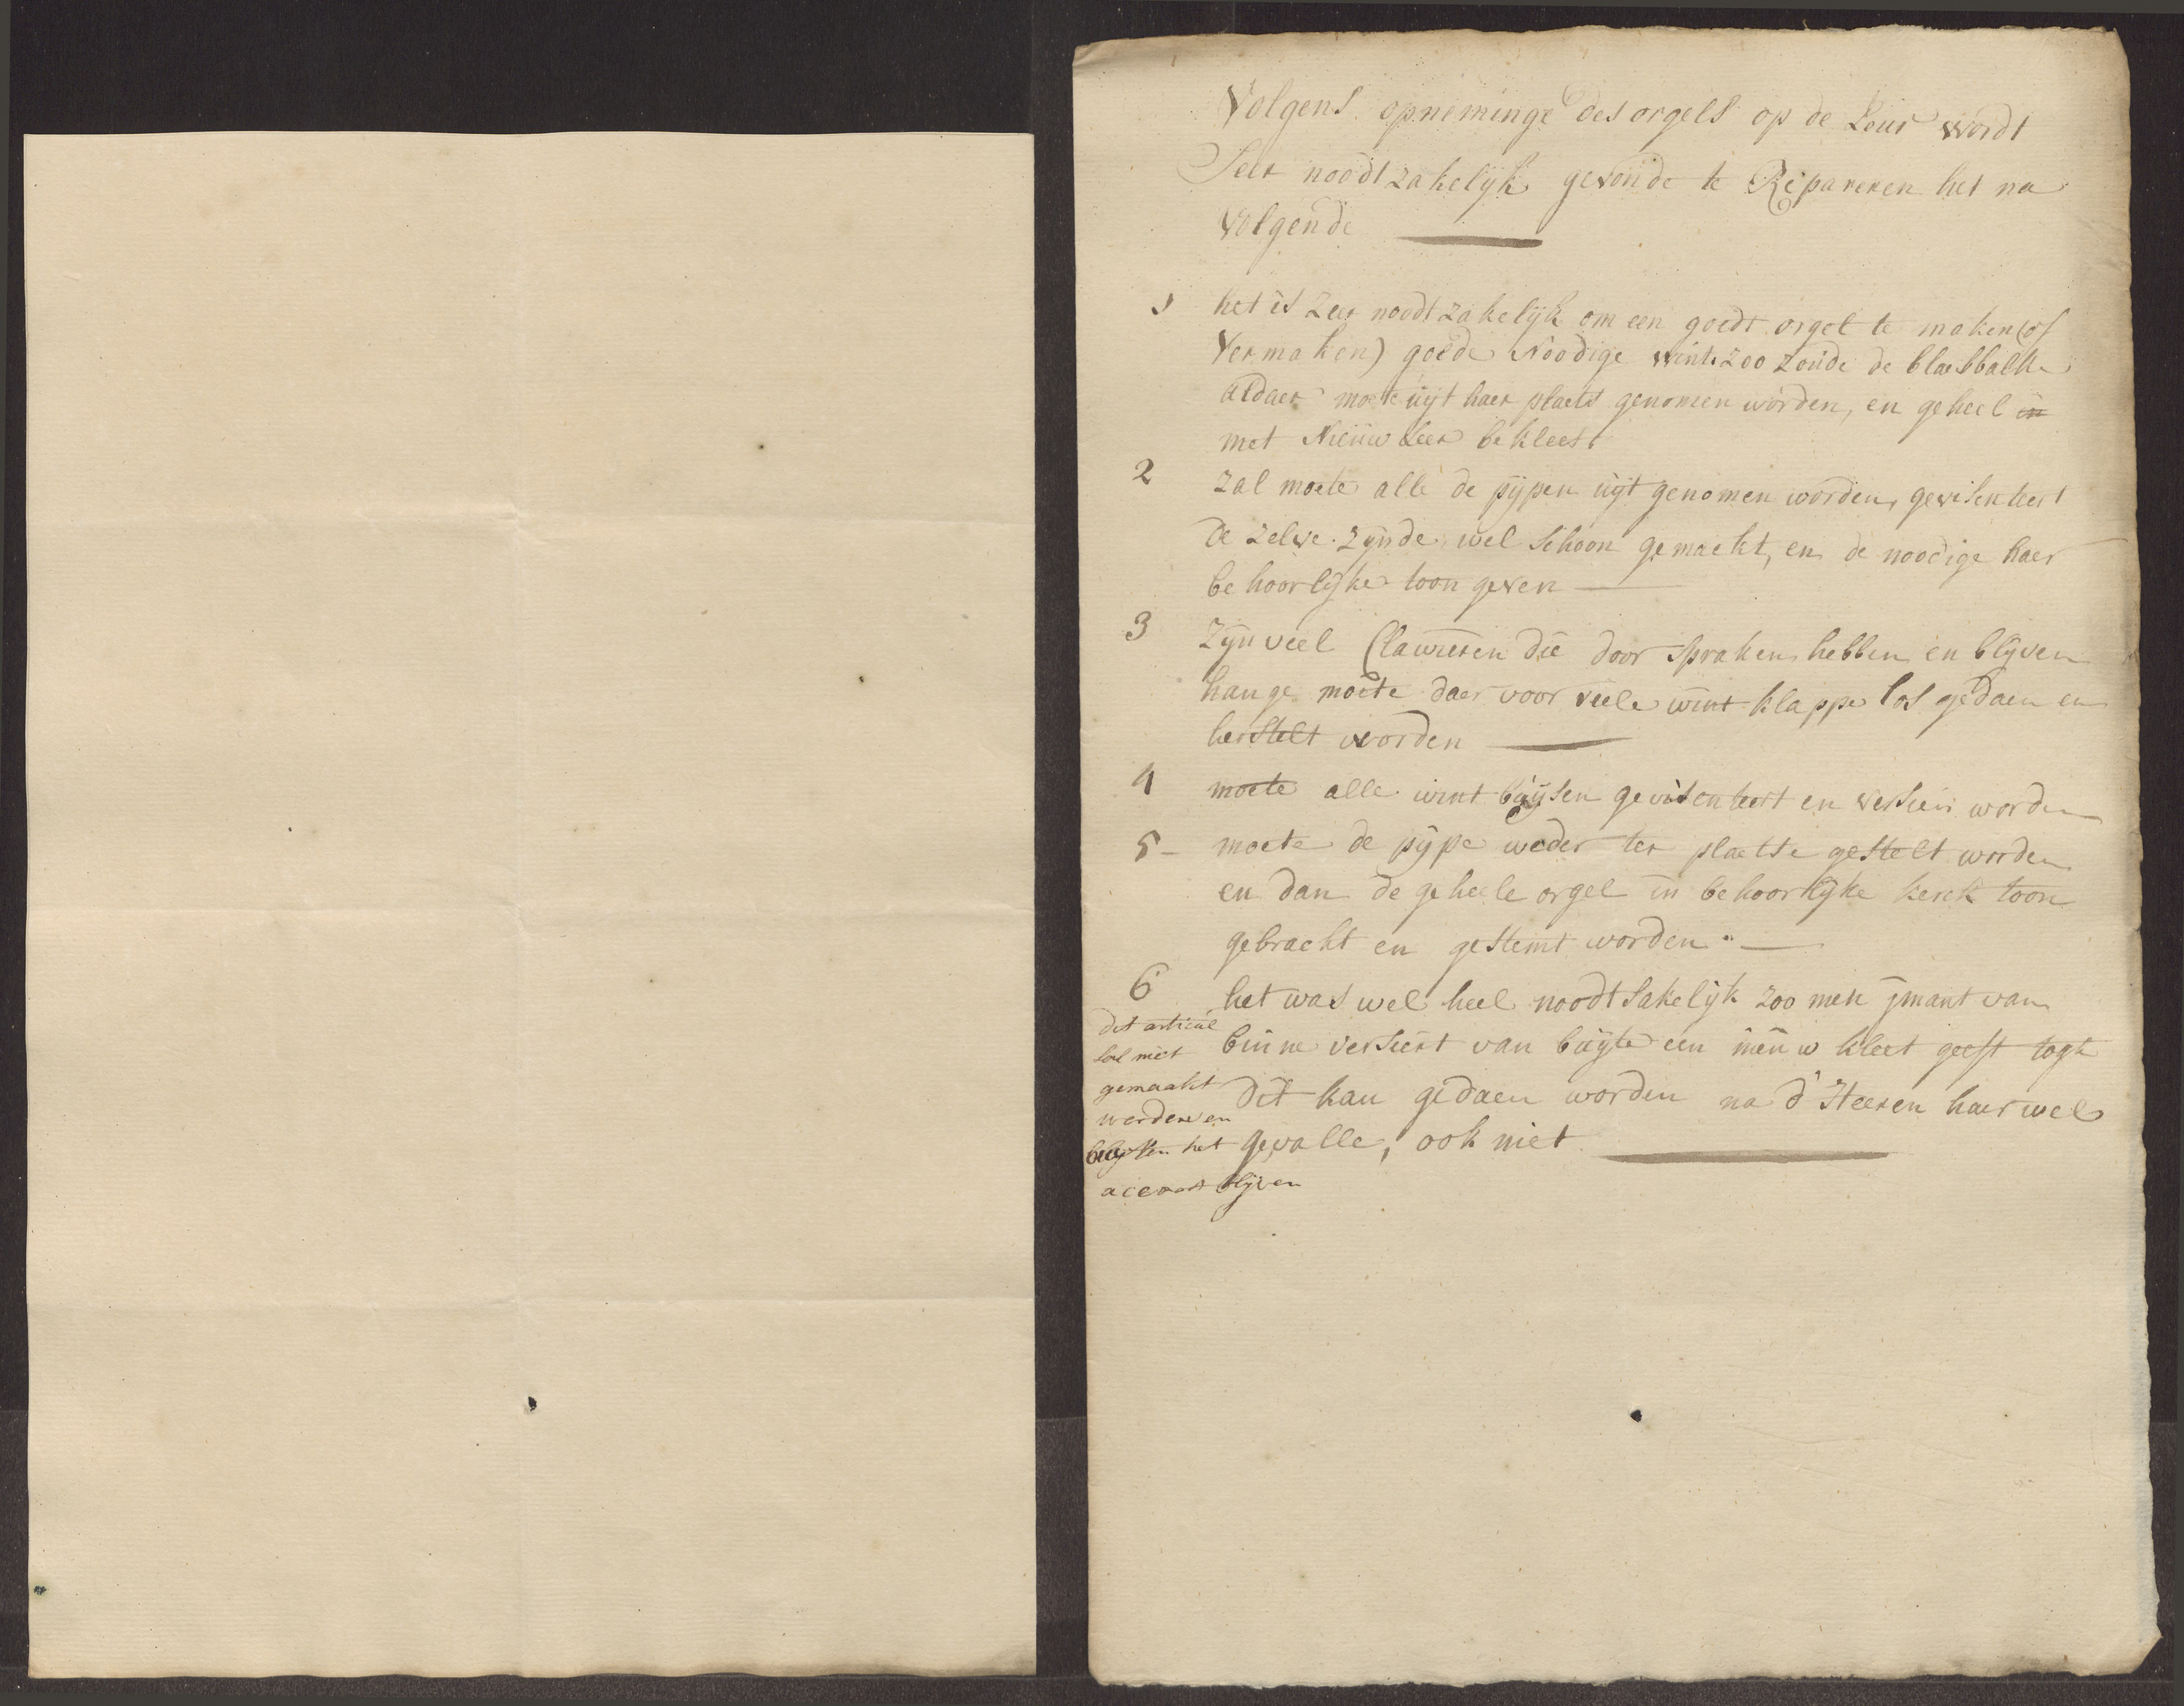 Volgens opneminge des orgels op de Leur wordt
Seer noodtzakelijk gevonde te Repareren het na
volgende
1 het is Zeer noodtzakelijk om een goedt orgel te maken (of
Vermaken) goede Noodige wint. zoo zoude de blaesbalke
aldaer moete uijt haer plaets genomen worden, en geheel in
met Nieuw Leer bekleest
2 Zal moete alle de pijpen uijt genomen worden, gevisenteert
de zelve. zijnde wel schoon gemaekt, en de noodige haer
behoorlijke toon geven
3 Zijn veel Clawieren die door spraken hebben en blijven
hange moete daer voor veele wint klappe los gedaen en
herstelt worden
4 moete alle wint buijsen gevisenteert en versien worden
5 - moete de pijpe weder ter plaetse gestelt worden
en dan de geheele orgel in behoorlijke kerck toon
gebracht en gestemt worden.
6 het was wel heel noodtsakelijk zoo men ijmant van
binne versiert van buijte een nieuw kleet geeft togh
dit kan gedaen worden na d' Heeren haer wel
gevalle, ook niet
dit articul
sal niet
gemaakt
werden en
buijten het
accoort blijven